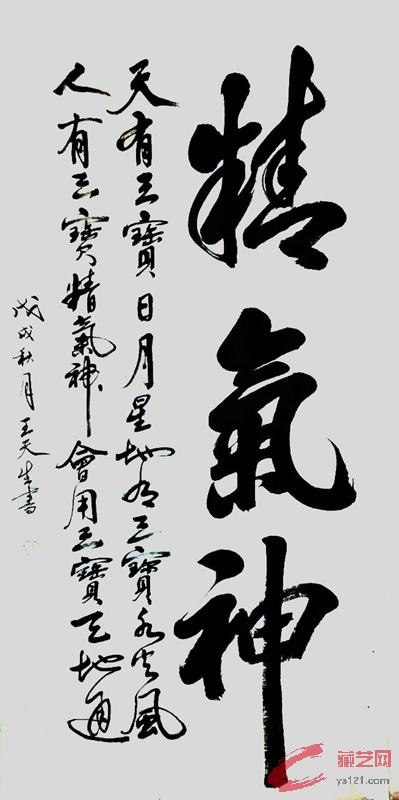 精氣神
天有三寶日月星地有三寶水火風
人有三寶精氣神會用三寶天地通
戊戌秋月王天生書
藏艺网
ys121.com